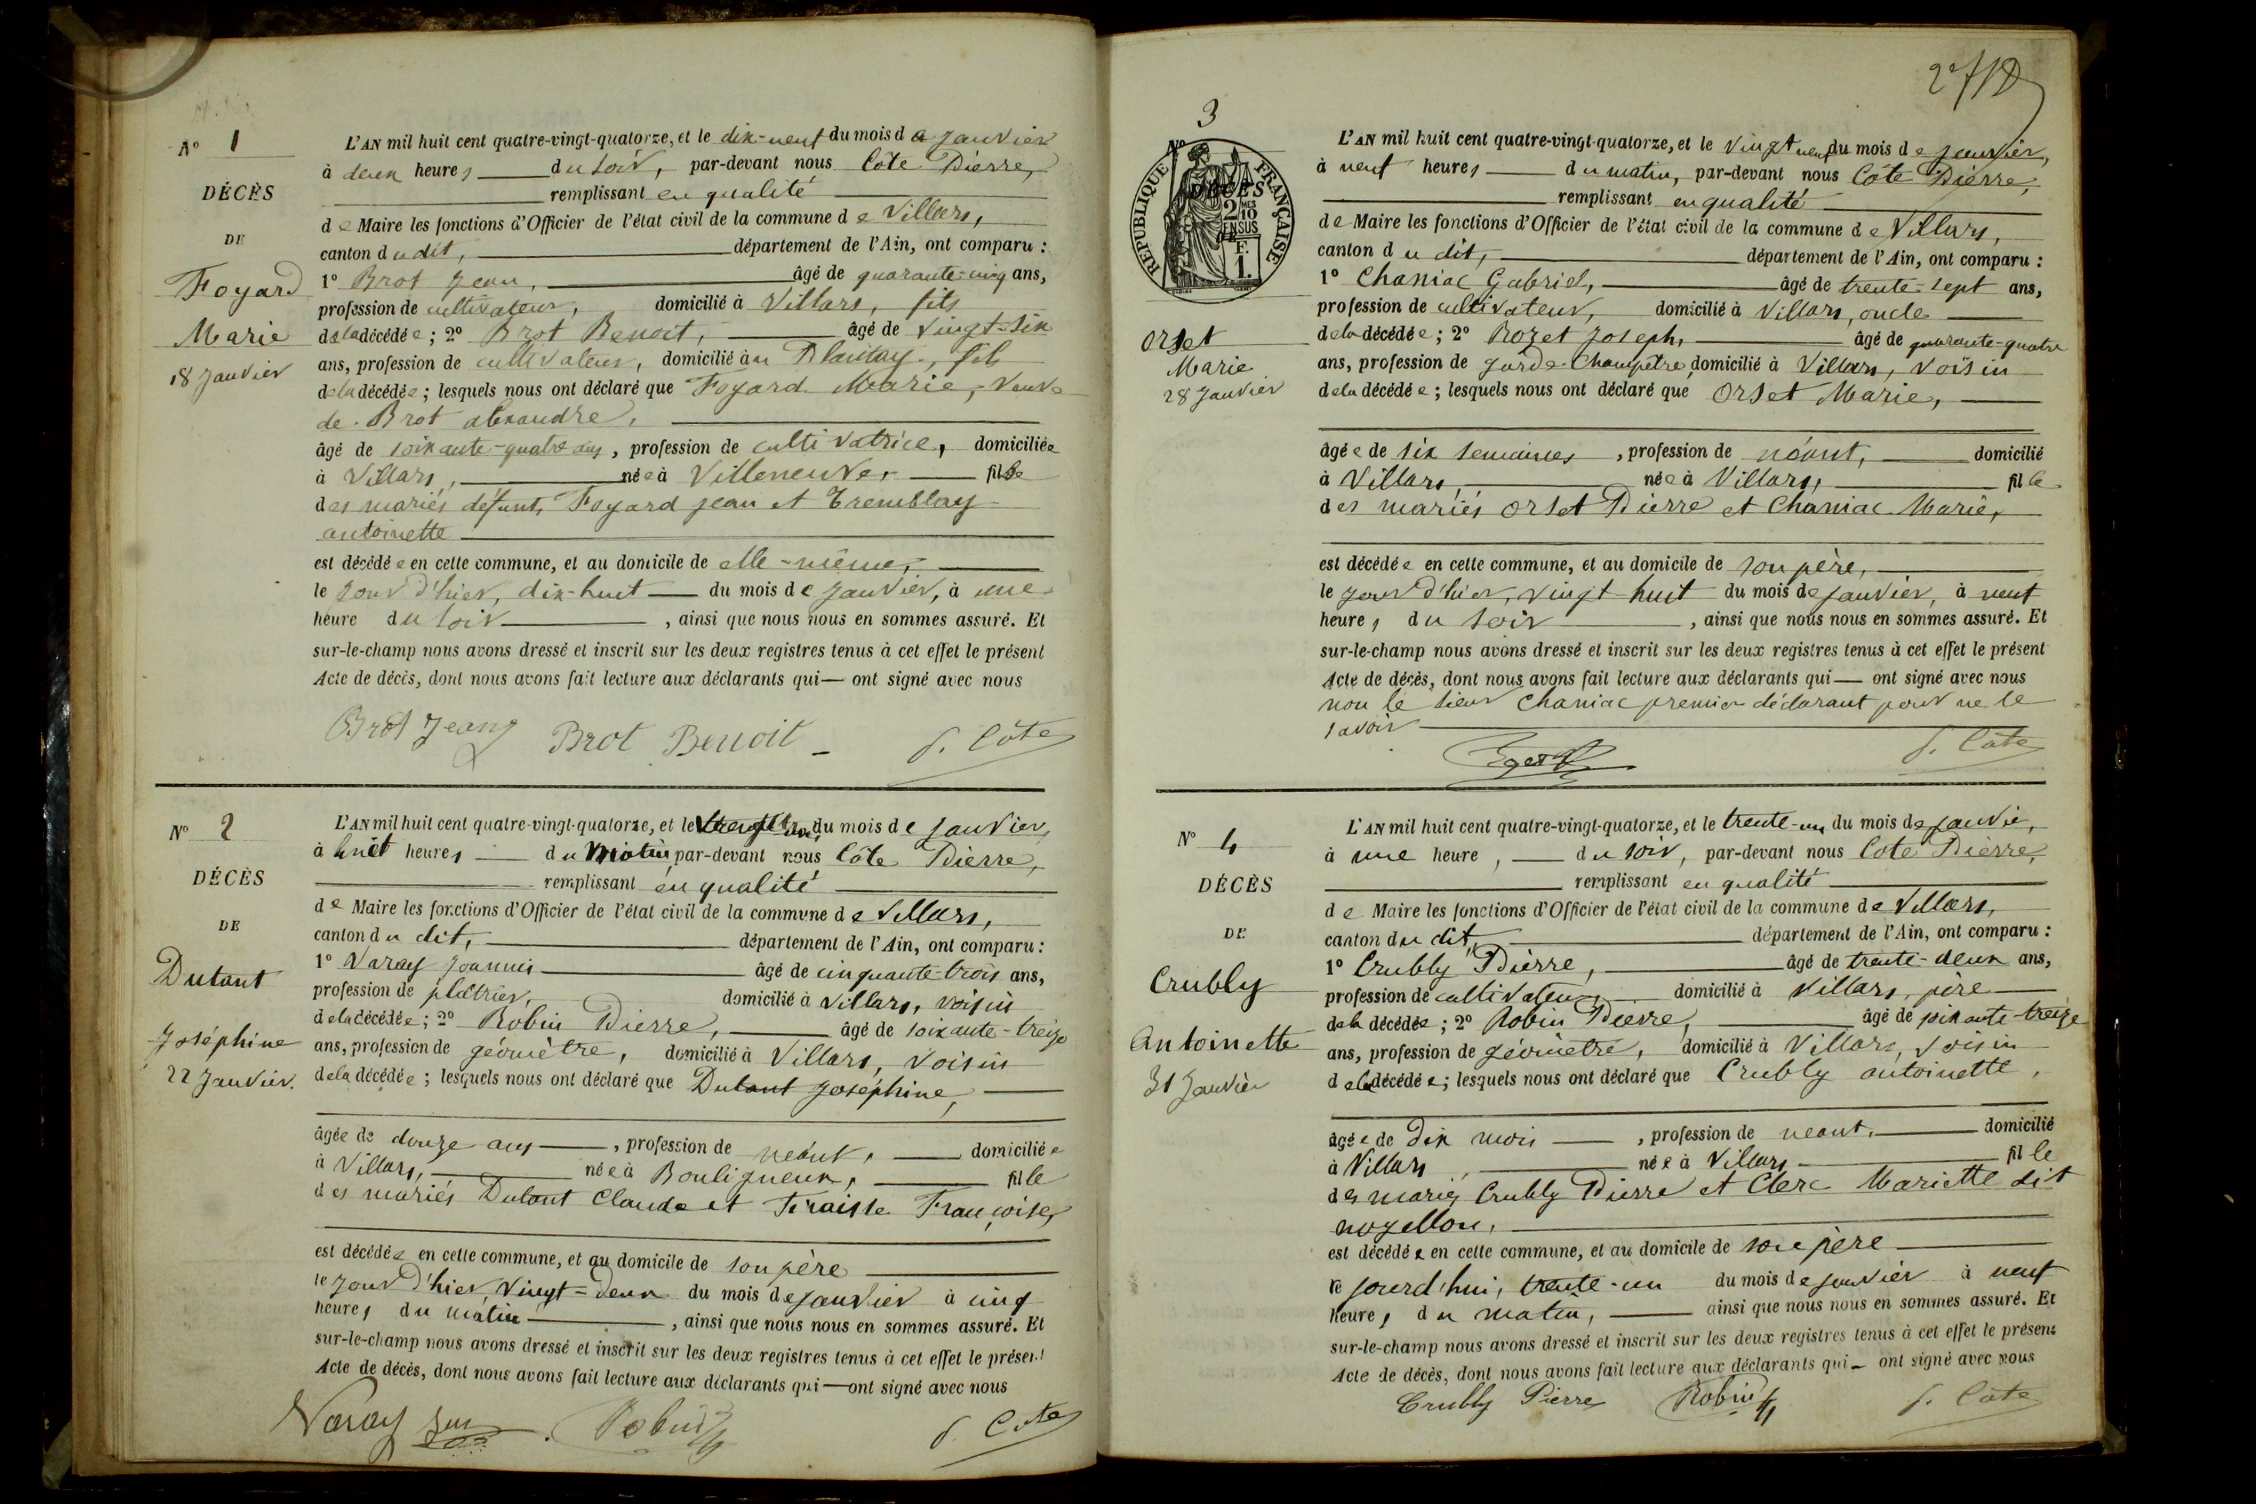 N° 1
DÉCÈS
DE
Foyard
Marie
18 Janvier
L'AN mil huit cent quatre-vingt-quatorze, et le dix-neuf du mois de Janvier
à deux heures du soir, par-devant nous Côte Pierre,
remplissant en qualité
de Maire les fonctions d'Officier de l'état civil de la commune de Villars,
canton du dit, département de l'Ain, ont comparu :
1° Brot Jean, âgé de quarante-cinq ans,
profession de cultivateur, domicilié à Villars, fils
de la décédée ; 2° Brot Benoit, âgé de vingt-six
ans, profession de cultivateur, domicilié au Plantay, fils
de la décédée ; lesquels nous ont déclaré que Foyard Marie, Veuve
de Brot alexandre,
âgé de soixante-quatre ans, profession de cultivatrice, domiciliée
à Villars, née à Villeneuve, fille
des mariés défunts, Foyard Jean et Tremblay
antoinette
est décédée en cette commune, et au domicile de elle-même,
le jour d'hier, dix-huit du mois de Janvier, à une
heure du soir, ainsi que nous nous en sommes assuré. Et
sur-le-champ nous avons dressé et inscrit sur les deux registres tenus à cet effet le présent
Acte de décès, dont nous avons fait lecture aux déclarants qui — ont signé avec nous
Brot Jean Brot Benoit P. Côte
N° 2
DÉCÈS
DE
Dutant
Joséphine
22 Janvier.
L'AN mil huit cent quatre-vingt-quatorze, et le du mois de Janvier,
à huit heures du matin par-devant nous Côte Pierre,
remplissant en qualité
de Maire les fonctions d'Officier de l'état civil de la commune de Villars,
canton du dit, département de l'Ain, ont comparu :
1° Varay Joannis âgé de cinquante-trois ans,
profession de plâtrier, domicilié à Villars, voisin
de la décédée ; 2° Robin Pierre, âgé de soixante-treize
ans, profession de géomètre, domicilié à Villars, voisin
de la décédée ; lesquels nous ont déclaré que Dutant Joséphine,
âgée de douze ans, profession de néant, domiciliée
à Villars, née à Bouligneux, fille
des mariés Dutant Claude et Françoise,
est décédée en cette commune, et au domicile de son père
le jour d'hier, vingt-deux du mois de Janvier à cinq
heures du matin, ainsi que nous nous en sommes assuré. Et
sur-le-champ nous avons dressé et inscrit sur les deux registres tenus à cet effet le présent
Acte de décès, dont nous avons fait lecture aux déclarants qui — ont signé avec nous
Varay Robin P. Côte
3
N°
RÉPUBLIQUE FRANÇAISE
DÉCÈS
2 MES 10 EN SUS
F. 1.
Orset
Marie
28 Janvier
L'AN mil huit cent quatre-vingt-quatorze, et le vingt neuf du mois de Janvier,
à neuf heures du matin, par-devant nous Côte Pierre,
remplissant en qualité
de Maire les fonctions d'Officier de l'état civil de la commune de Villars,
canton du dit, département de l'Ain, ont comparu :
1° Chaniac Gabriel, âgé de trente-sept ans,
profession de cultivateur, domicilié à Villars, oncle
de la décédée ; 2° Rozet Joseph, âgé de quarante-quatre
ans, profession de garde-Champêtre, domicilié à Villars, voisin
de la décédée ; lesquels nous ont déclaré que Orset Marie,
âgée de six semaines, profession de néant, domicilié
à Villars, née à Villars, fille
des mariés Orset Pierre et Chaniac Marie,
est décédée en cette commune, et au domicile de son père,
le jour d'hier, vingt-huit du mois de Janvier, à neuf
heures du soir, ainsi que nous nous en sommes assuré. Et
sur-le-champ nous avons dressé et inscrit sur les deux registres tenus à cet effet le présent
Acte de décès, dont nous avons fait lecture aux déclarants qui — ont signé avec nous
non le sieur Chaniac premier déclarant pour ne le
savoir
P. Côte
N° 4
DÉCÈS
DE
Crubly
Antoinette
31 Janvier
L'AN mil huit cent quatre-vingt-quatorze, et le trente-un du mois de Janvier,
à une heure, du soir, par-devant nous Côte Pierre,
remplissant en qualité
de Maire les fonctions d'Officier de l'état civil de la commune de Villars,
canton du dit, département de l'Ain, ont comparu :
1° Crubly Pierre, âgé de trente-deux ans,
profession de cultivateur, domicilié à Villars, père
de la décédée ; 2° Robin Pierre, âgé de soixante-treize
ans, profession de géomètre, domicilié à Villars, voisin
de la décédée ; lesquels nous ont déclaré que Crubly antoinette,
âgée de dix mois, profession de néant, domicilié
à Villars, née à Villars fille
des mariés Crubly Pierre et Clerc Mariette dit
noyellon,
est décédée en cette commune, et au domicile de son père
le jourd'hui, trente-un du mois de Janvier à neuf
heures du matin, ainsi que nous nous en sommes assuré. Et
sur-le-champ nous avons dressé et inscrit sur les deux registres tenus à cet effet le présent
Acte de décès, dont nous avons fait lecture aux déclarants qui — ont signé avec nous
Crubly Pierre Robin P. Côte